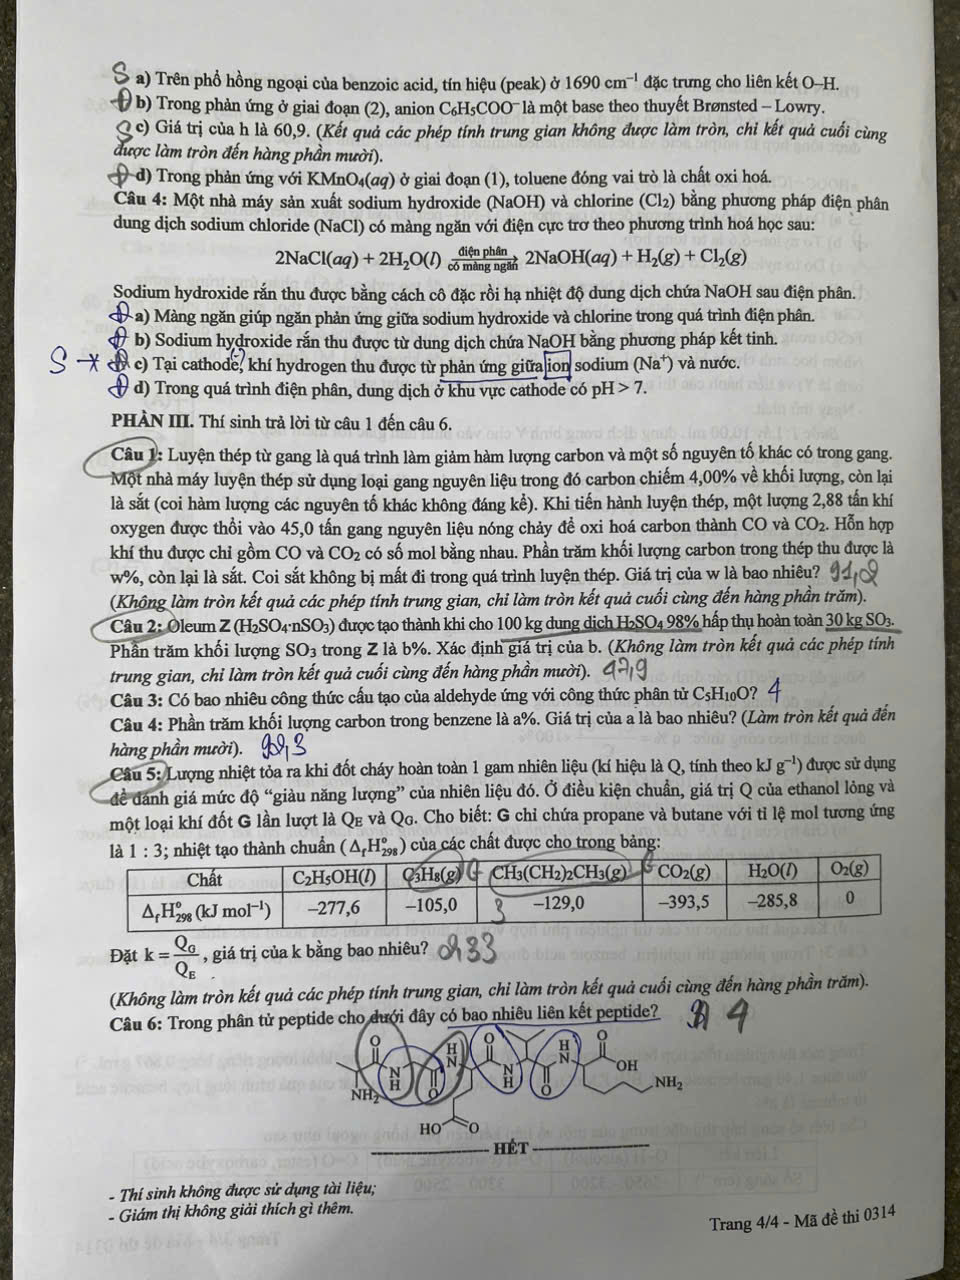 S a) Trên phổ hồng ngoại của benzoic acid, tín hiệu (peak) ở 1690 cm⁻¹ đặc trưng cho liên kết O–H.
Đ b) Trong phản ứng ở giai đoạn (2), anion C₆H₅COO⁻ là một base theo thuyết Brønsted – Lowry.
S c) Giá trị của h là 60,9. (Kết quả các phép tính trung gian không được làm tròn, chỉ kết quả cuối cùng
được làm tròn đến hàng phần mười).
Đ d) Trong phản ứng với KMnO₄(aq) ở giai đoạn (1), toluene đóng vai trò là chất oxi hoá.
Câu 4: Một nhà máy sản xuất sodium hydroxide (NaOH) và chlorine (Cl₂) bằng phương pháp điện phân
dung dịch sodium chloride (NaCl) có màng ngăn với điện cực trơ theo phương trình hoá học sau:
điện phân
2NaCl(aq) + 2H₂O(l) → 2NaOH(aq) + H₂(g) + Cl₂(g)
có màng ngăn
Sodium hydroxide rắn thu được bằng cách cô đặc rồi hạ nhiệt độ dung dịch chứa NaOH sau điện phân.
Đ a) Màng ngăn giúp ngăn phản ứng giữa sodium hydroxide và chlorine trong quá trình điện phân.
Đ b) Sodium hydroxide rắn thu được từ dung dịch chứa NaOH bằng phương pháp kết tinh.
S * c) Tại cathode, (-) khí hydrogen thu được từ phản ứng giữa ion sodium (Na⁺) và nước.
Đ d) Trong quá trình điện phân, dung dịch ở khu vực cathode có pH > 7.
PHẦN III. Thí sinh trả lời từ câu 1 đến câu 6.
Câu 1: Luyện thép từ gang là quá trình làm giảm hàm lượng carbon và một số nguyên tố khác có trong gang.
Một nhà máy luyện thép sử dụng loại gang nguyên liệu trong đó carbon chiếm 4,00% về khối lượng, còn lại
là sắt (coi hàm lượng các nguyên tố khác không đáng kể). Khi tiến hành luyện thép, một lượng 2,88 tấn khí
oxygen được thổi vào 45,0 tấn gang nguyên liệu nóng chảy để oxi hoá carbon thành CO và CO₂. Hỗn hợp
khí thu được chỉ gồm CO và CO₂ có số mol bằng nhau. Phần trăm khối lượng carbon trong thép thu được là
w%, còn lại là sắt. Coi sắt không bị mất đi trong quá trình luyện thép. Giá trị của w là bao nhiêu?
(Không làm tròn kết quả các phép tính trung gian, chỉ làm tròn kết quả cuối cùng đến hàng phần trăm).
Câu 2: Oleum Z (H₂SO₄·nSO₃) được tạo thành khi cho 100 kg dung dịch H₂SO₄ 98% hấp thụ hoàn toàn 30 kg SO₃.
Phần trăm khối lượng SO₃ trong Z là b%. Xác định giá trị của b. (Không làm tròn kết quả các phép tính
trung gian, chỉ làm tròn kết quả cuối cùng đến hàng phần mười).
Câu 3: Có bao nhiêu công thức cấu tạo của aldehyde ứng với công thức phân tử C₅H₁₀O? 4
Câu 4: Phần trăm khối lượng carbon trong benzene là a%. Giá trị của a là bao nhiêu? (Làm tròn kết quả đến
hàng phần mười). 92,3
Câu 5: Lượng nhiệt tỏa ra khi đốt cháy hoàn toàn 1 gam nhiên liệu (kí hiệu là Q, tính theo kJ g⁻¹) được sử dụng
để đánh giá mức độ “giàu năng lượng” của nhiên liệu đó. Ở điều kiện chuẩn, giá trị Q của ethanol lỏng và
một loại khí đốt G lần lượt là Q_E và Q_G. Cho biết: G chỉ chứa propane và butane với tỉ lệ mol tương ứng
là 1 : 3; nhiệt tạo thành chuẩn (Δ_fH°₂₉₈) của các chất được cho trong bảng:
Chất C₂H₅OH(l) C₃H₈(g) CH₃(CH₂)₂CH₃(g) CO₂(g) H₂O(l) O₂(g)
Δ_fH°₂₉₈ (kJ mol⁻¹) –277,6 –105,0 3 –129,0 –393,5 –285,8 0
Đặt k = Q_G/Q_E, giá trị của k bằng bao nhiêu?
(Không làm tròn kết quả các phép tính trung gian, chỉ làm tròn kết quả cuối cùng đến hàng phần trăm).
Câu 6: Trong phân tử peptide cho dưới đây có bao nhiêu liên kết peptide? 4
O H N O H N O
NH₂ N H O N H O OH NH₂
HO O
HẾT
- Thí sinh không được sử dụng tài liệu;
- Giám thị không giải thích gì thêm.
Trang 4/4 - Mã đề thi 0314